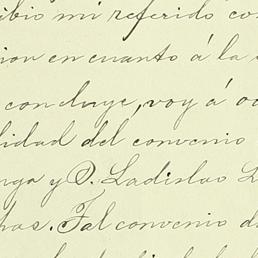 ibio mi referido co
ion en cuanto á la
concluye, voy á oc
lidad del convenio
nga y D. Ladislao L
has. Tal convenio d